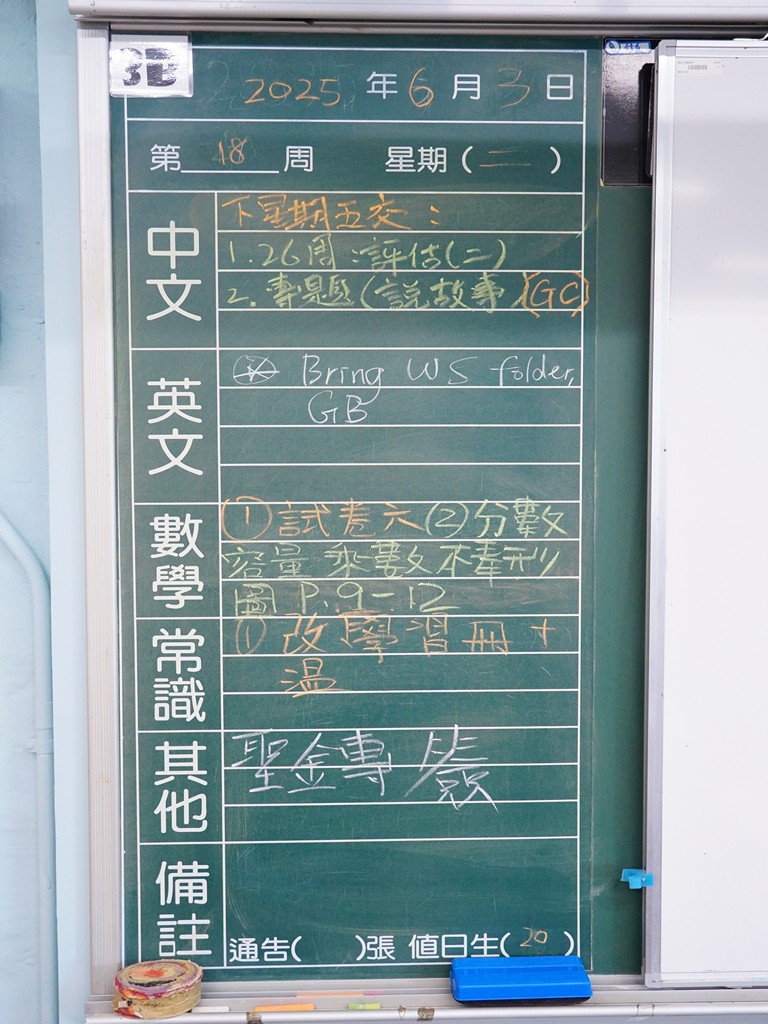 3B
2025 年 6 月 3 日
第 18 周 星期 ( 二 )
中文
下星期五交：
1. 26周：評估(二)
2. 專題(說故事)(GC)
英文
Bring WS folder,
GB
數學
① 試卷六 ② 分數
容量 乘數 棒形
圖 P.9-12
常識
① 改學習冊 +
溫
其他
聖金專
備註
通告( )張 值日生( 20 )